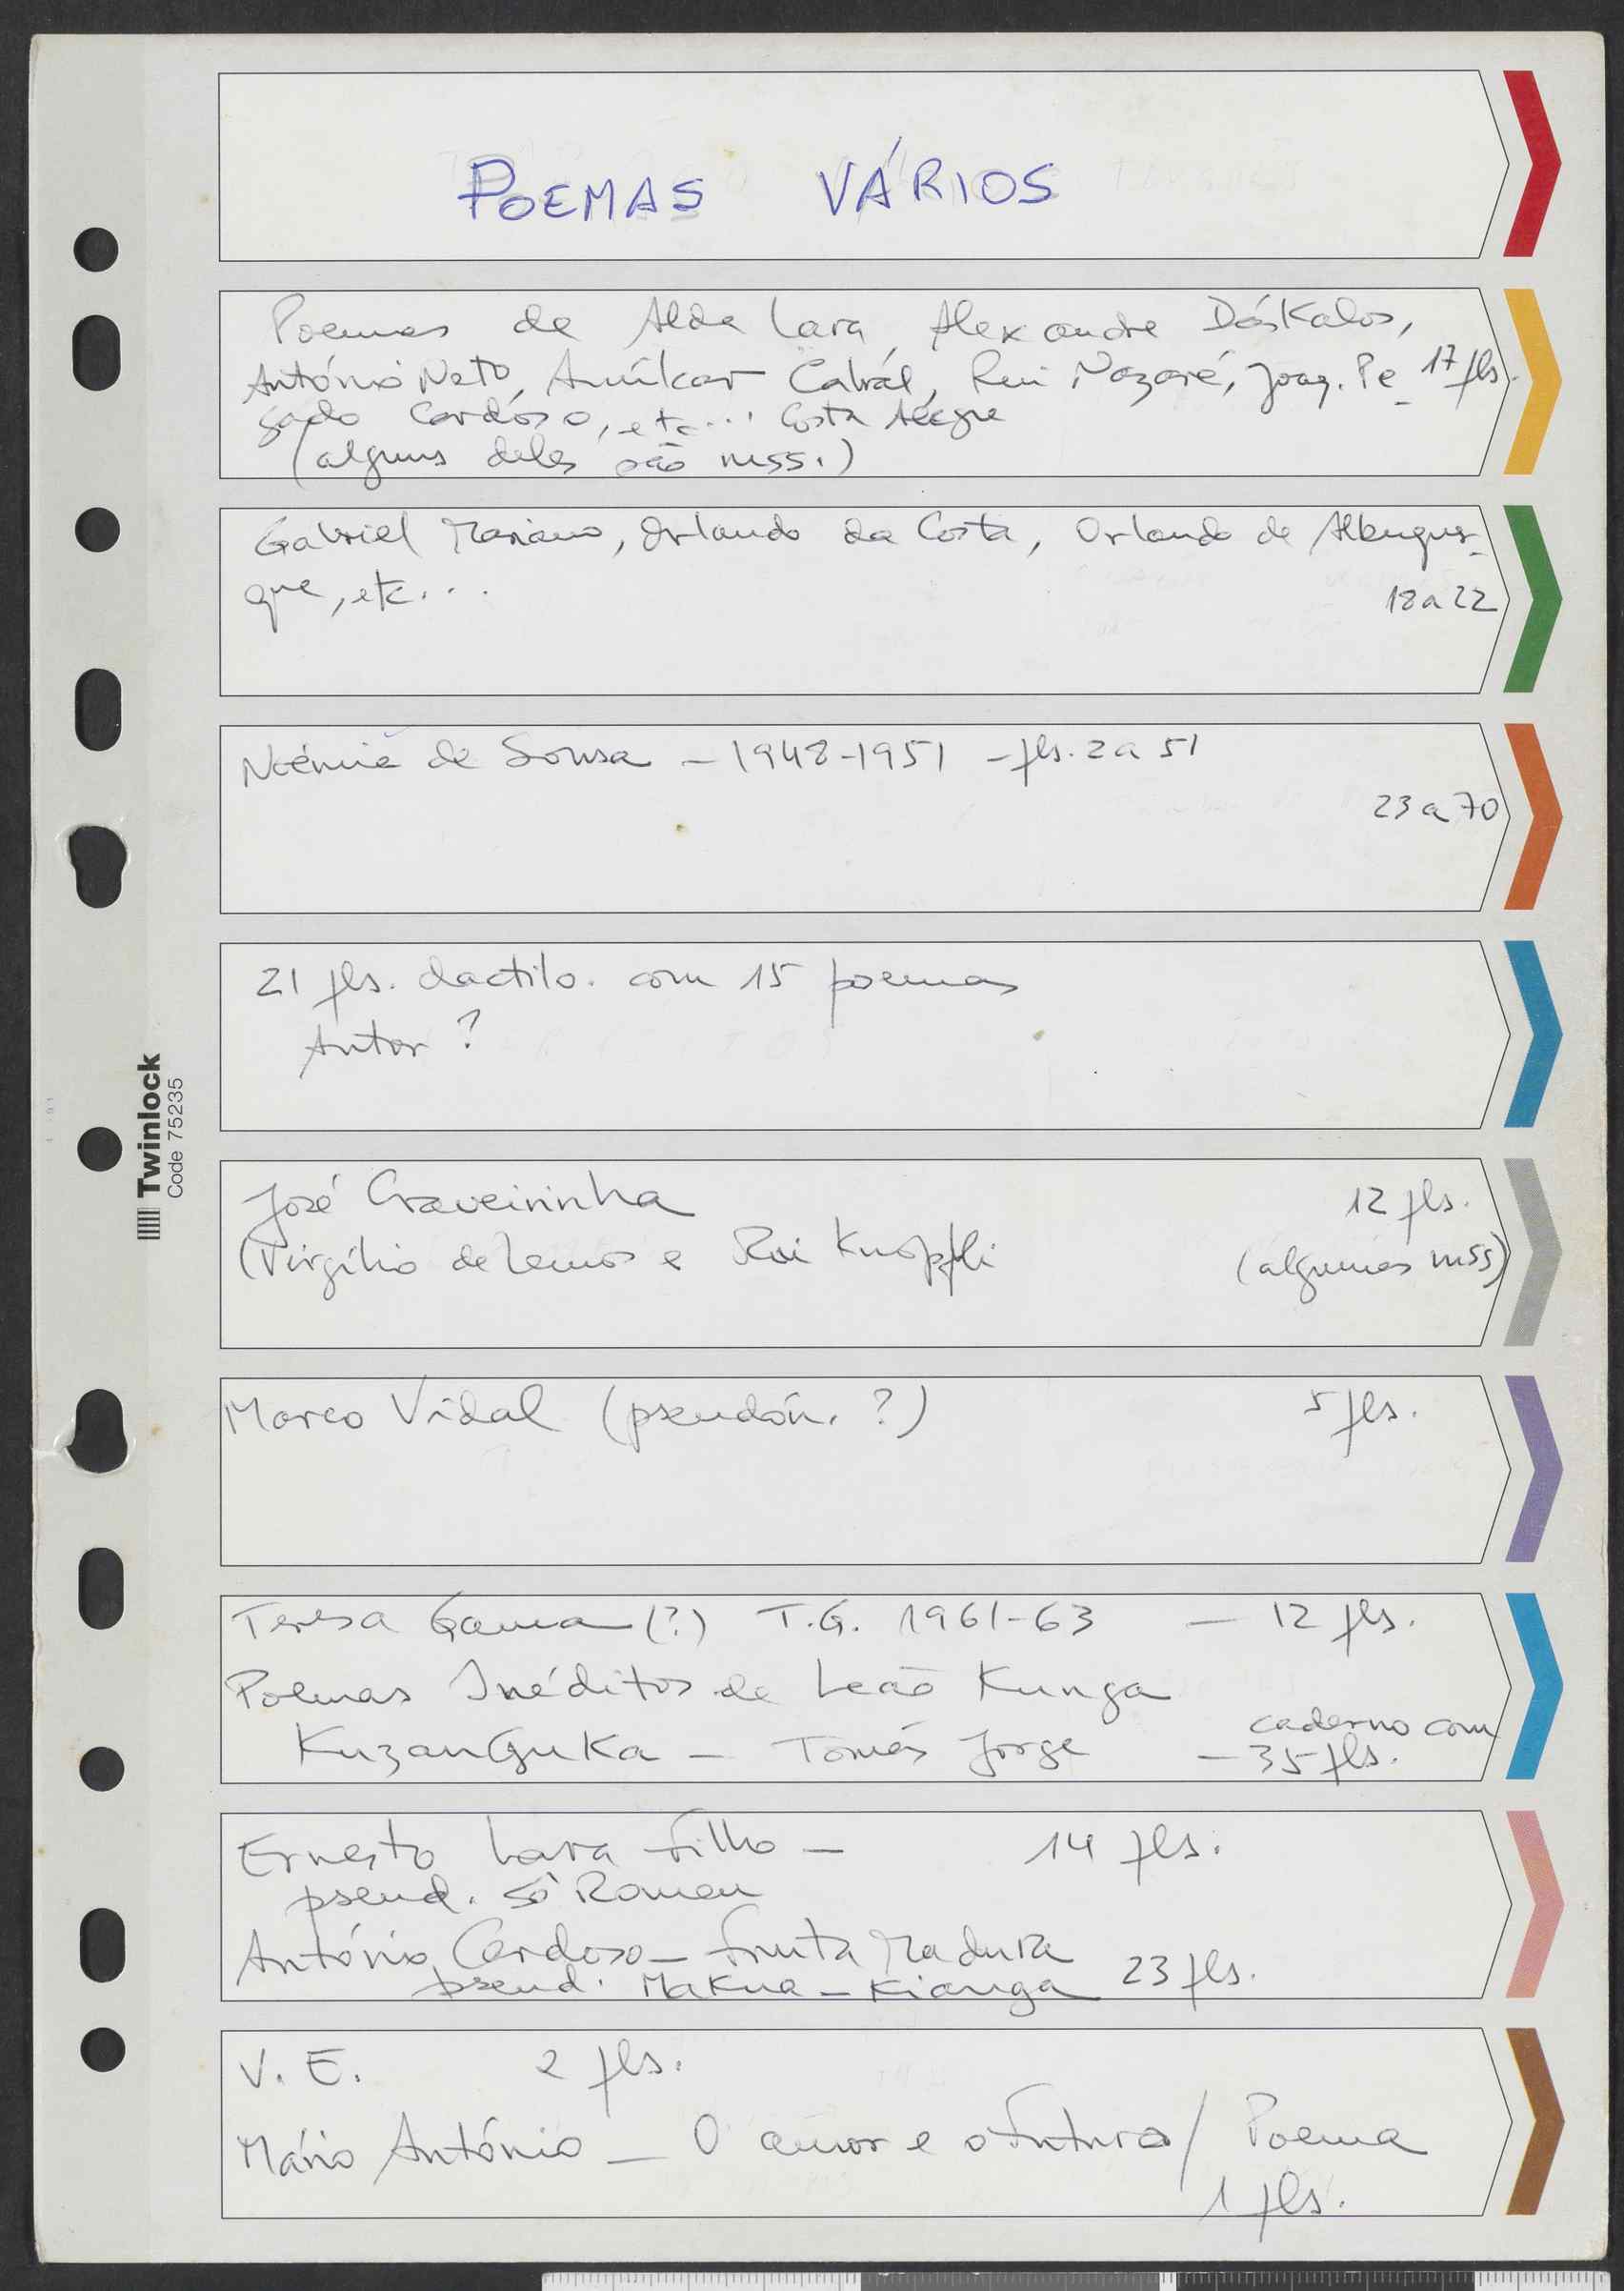 POEMAS VÁRIOS
Poemas de Alda Lara, Alexandre Dáskalos,
António Neto, Amílcar Cabral, Rui Nazaré, Joaq. Pe- 17 fls.
gado Cardoso, etc... Costa Alegre
(alguns deles são mss.)
Gabriel Mariano, Orlando da Costa, Orlando de Albuquer-
que, etc...
18 a 22
Noémia de Sousa - 1948-1951 - fls. 2 a 51
23 a 70
21 fls. dactilo. com 15 poemas
Autor ?
José Craveirinha 12 fls.
(Virgílio de Lemos e Rui Knopfli (algumas mss)
Marco Vidal (pseudón. ?) 5 fls.
Teresa Gama (?) T.G. 1961-63 — 12 fls.
Poemas Inéditos de Leão Kunga
caderno com
KuzanGuKa — Tomás Jorge — 35 fls.
Ernesto Lara Filho — 14 fls.
pseud. Sô Romeu
António Cardoso — Fruta Madura
pseud. Makua - Kianga 23 fls.
V. E. 2 fls.
Mário António — O amor e o futuro / Poema
1 fls.
Twinlock
Code 75235